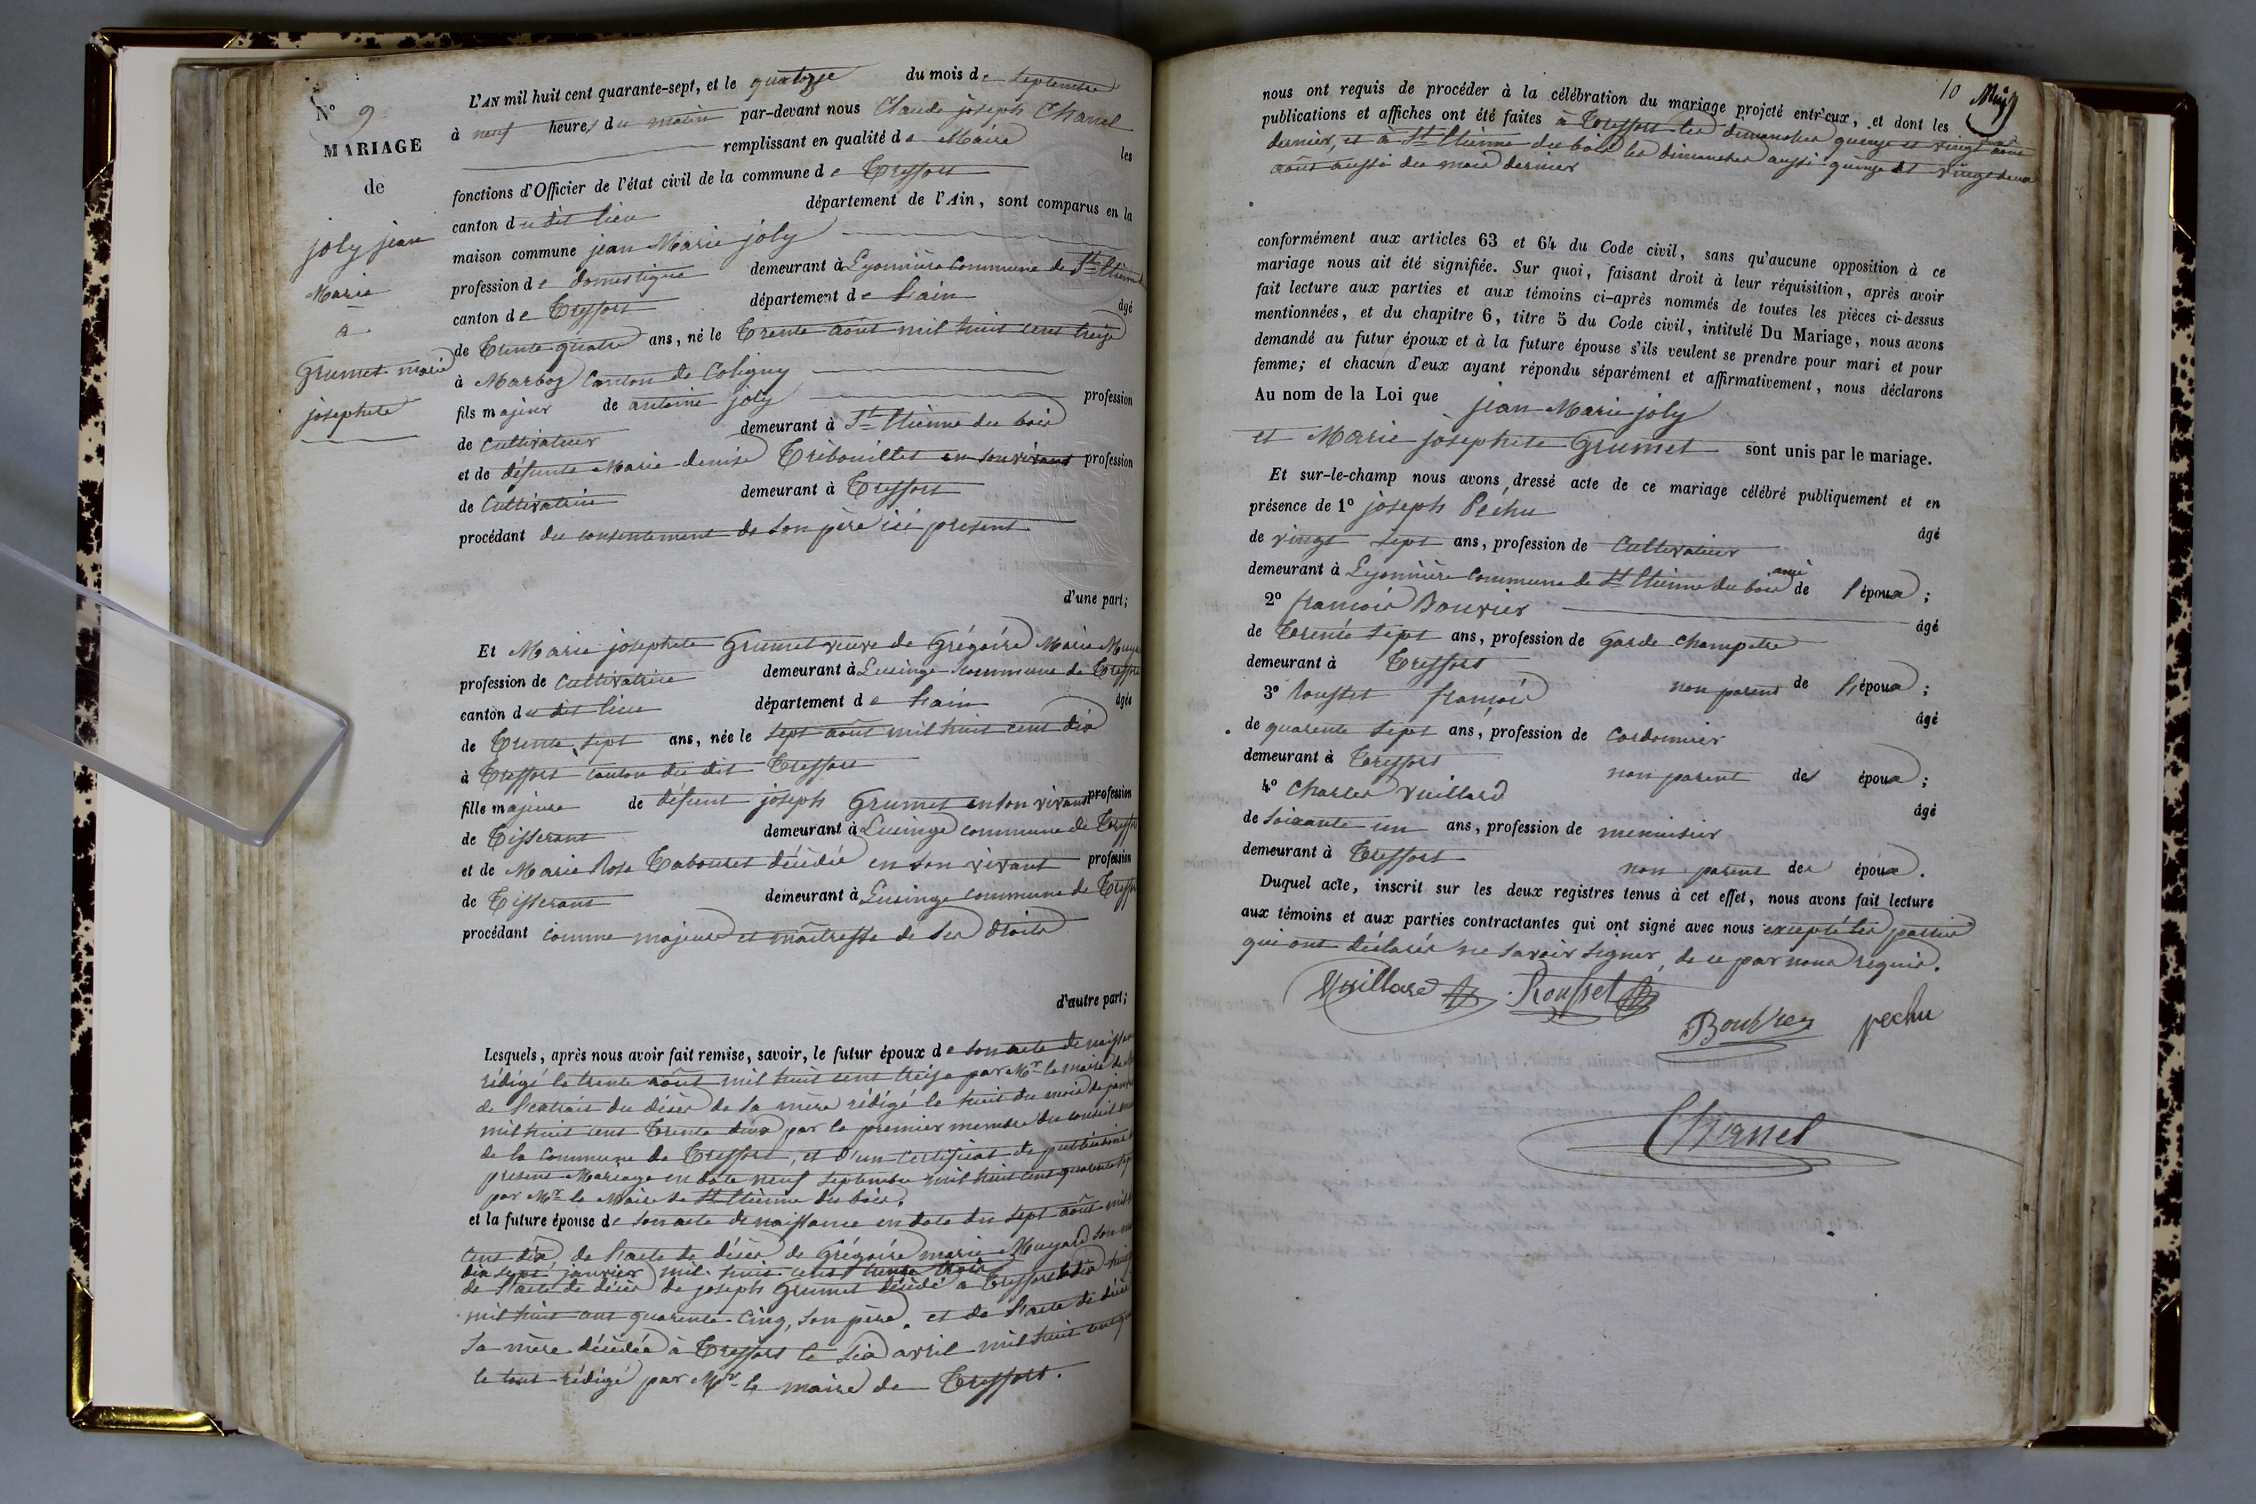 N° 9
MARIAGE
de
joly jean
Marie
a
Grumet marie
josephete
L'AN mil huit cent quarante-sept, et le quatorze du mois de septembre
à neuf heures du matin par-devant nous Claude joseph Chanel
remplissant en qualité de Maire les
fonctions d'Officier de l'état civil de la commune de Treffort
canton du dit lieu département de l'Ain, sont comparus en la
maison commune jean Marie joly
profession de domestique demeurant à Lyonnière Commune de St Etienne
canton de Treffort département de l'ain âgé
de Trente quatre ans, né le Trente août mil huit cent treize
à Marboz Canton de Coligny
fils majeur de antoine joly profession
de Cultivateur demeurant à St Etienne du bois
et de défunte Marie denise Tribouillet en son vivant profession
de Cultivatrice demeurant à Treffort
procédant du consentement de son père ici present
d'une part;
Et Marie josephete Grumet veuve de Grégoire Marie Muya
profession de Cultivatrice demeurant à Lusinge Commune de Treffort
canton du dit lieu département de l'ain âgée
de Trente sept ans, née le sept août mil huit cent dix
à Treffort canton du dit Treffort
fille majeure de défunt joseph Grumet en son vivant profession
de Tisserant demeurant à Lusinge commune de Treffo
et de Marie Rose Tabouret décédée en son vivant profession
de Tisserant demeurant à Lusinge commune de Treff
procédant comme majeure et maîtresse de ses droits
d'autre part;
Lesquels, après nous avoir fait remise, savoir, le futur époux de son acte de naissan
rédigé le trente août mil huit cent treize par Mr le maire de
de l'extrait du décès de sa mère rédigé le huit du mois de janv
mil huit cent Trente deux par le premier membre du conseil
de la Commune de Treffort, et d'un certificat de publications
present Mariage en date neuf septembre mil huit cent quarante sep
par Mr le Maire de St Etienne du bois.
et la future épouse de son acte de naissance en date du sept août mil
cent dix de l'acte de décès de Grégoire marie Muyard son
dix sept janvier mil huit cent trente trois
de l'acte de décès de joseph Grumet décédé a Treffort le dix
mil huit cent quarante cinq, son père, et de l'acte de décès
sa mère décédée à Treffort le six avril mil huit cent
le tout rédigé par Mr le maire de Treffort.
10
nous ont requis de procéder à la célébration du mariage projeté entr'eux, et dont les
publications et affiches ont été faites à Treffort les dimanches quinze et vingt
dernier, et à St Etienne du bois les dimanches aussi quinze et vingt deux
août aussi du mois dernier
conformément aux articles 63 et 64 du Code civil, sans qu'aucune opposition à ce
mariage nous ait été signifiée. Sur quoi, faisant droit à leur réquisition, après avoir
fait lecture aux parties et aux témoins ci-après nommés de toutes les pièces ci-dessus
mentionnées, et du chapitre 6, titre 5 du Code civil, intitulé Du Mariage, nous avons
demandé au futur époux et à la future épouse s'ils veulent se prendre pour mari et pour
femme; et chacun d'eux ayant répondu séparément et affirmativement, nous déclarons
Au nom de la Loi que jean Marie joly
et Marie josephete Grumet sont unis par le mariage.
Et sur-le-champ nous avons dressé acte de ce mariage célébré publiquement et en
présence de 1° joseph Péchu âgé
de vingt sept ans, profession de Cultivateur
demeurant à Lyonnière commune de St Etienne du bois ami de l'époux;
2° francois Bouvier âgé
de Trente sept ans, profession de garde champetre
demeurant à Treffort non parent de l'époux;
3° Rousset francois âgé
de quarente sept ans, profession de cordonnier
demeurant à Treffort non parent des époux;
4° Charles Vuillard âgé
de soixante un ans, profession de menuisier
demeurant à Treffort non parent des époux.
Duquel acte, inscrit sur les deux registres tenus à cet effet, nous avons fait lecture
aux témoins et aux parties contractantes qui ont signé avec nous excepté les parties
qui ont déclarés ne savoir signer, de ce par nous requis.
Vuillard Rousset
Bouvier pechu
Chanel